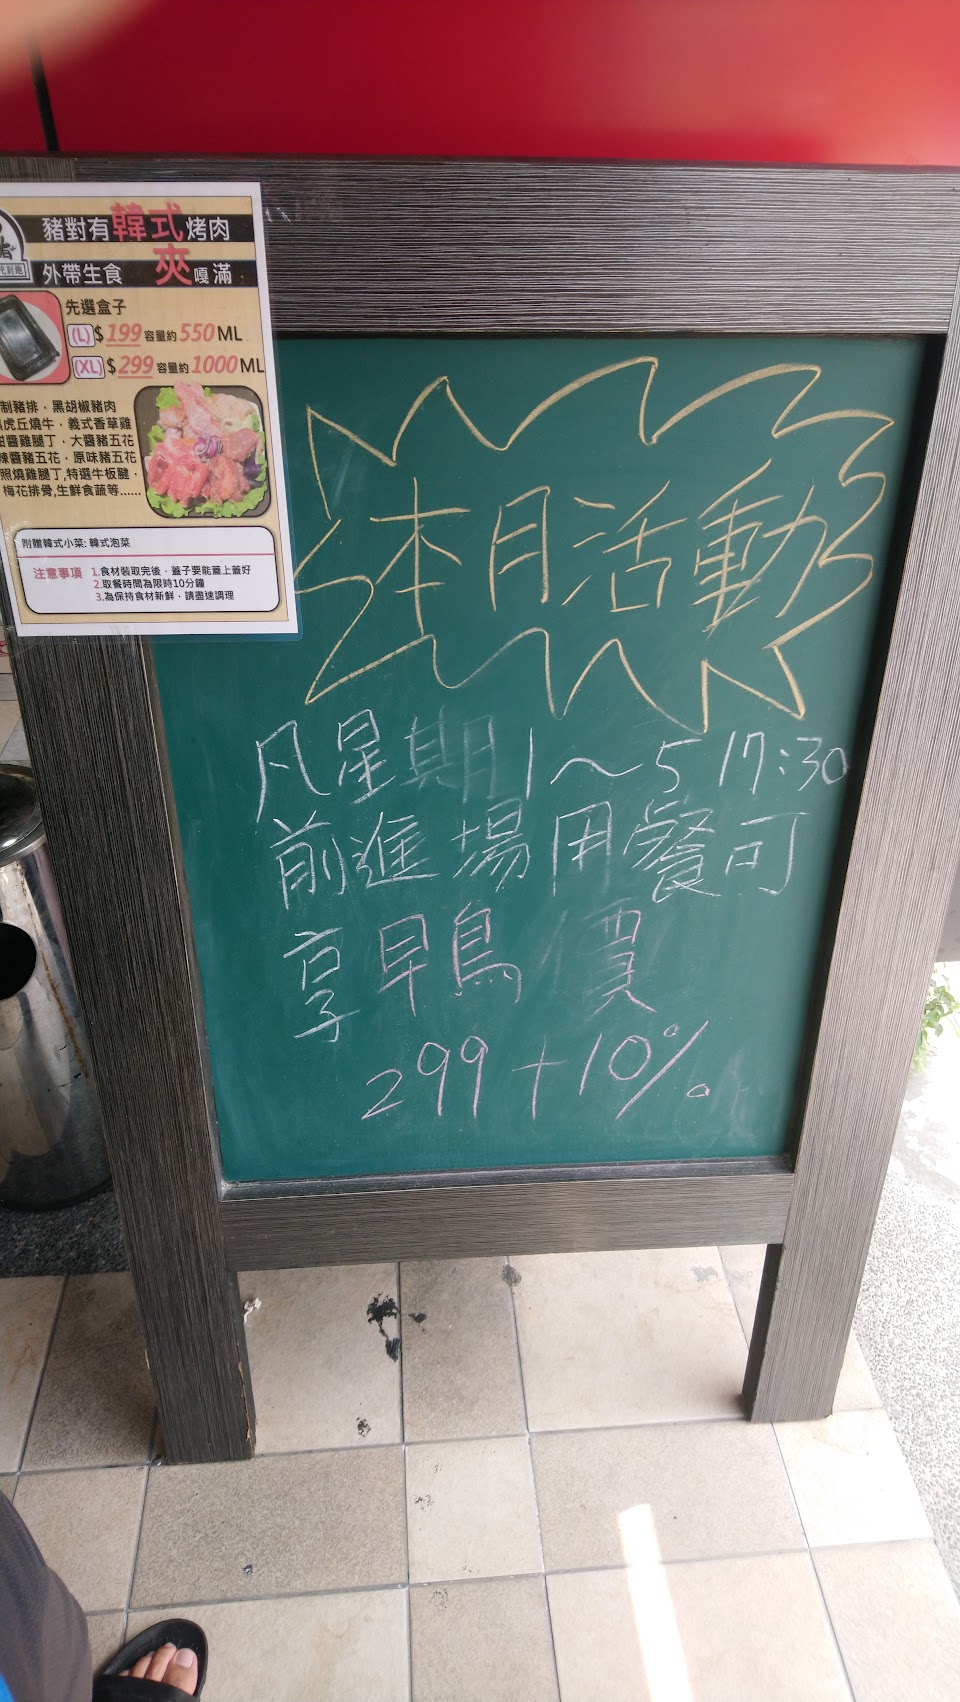 豬對有韓式烤肉
外帶生食 夾嘎滿
先選盒子
(L) $199 容量約550ML
(XL) $299 容量約1000ML
制豬排．黑胡椒豬肉
虎丘燒牛．義式香草雞
醬雞腿丁．大醬豬五花
辣醬豬五花．原味豬五花
照燒雞腿丁,特選牛板腱．
梅花排骨,生鮮食蔬等......
附贈韓式小菜: 韓式泡菜
注意事項 1.食材裝取完後，蓋子要能蓋上蓋好
2.取餐時間為限時10分鐘
3.為保持食材新鮮，請盡速調理
本月活動
凡星期1～5 17:30
前進場用餐可
享早鳥價
299+10%